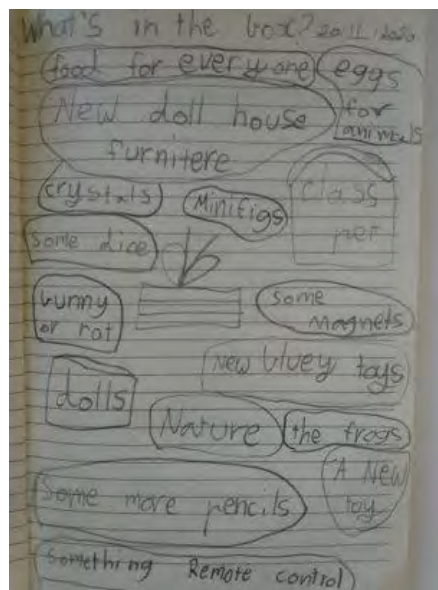 What's in the box? 20.11.2020
food for everyone
eggs
for
animals
New doll house
furnitere
crystals
Minifigs
class
pet
some dice
bunny
or rat
some
magnets
New bluey toys
dolls
Nature
the frogs
A New
toy
Some more pencils
something Remote control